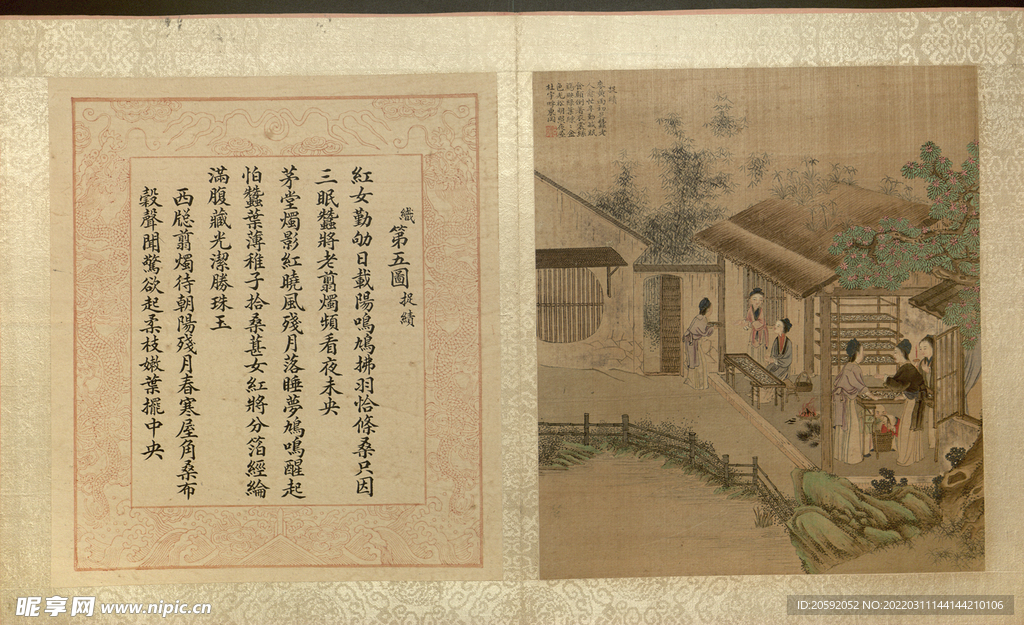 織第五圖捉績
紅女勤劬日載陽鳴鳩拂羽恰條桑只因
三眠蠶將老翦燭頻看夜未央
茅堂燭影紅曉風殘月落睡夢鳩鳴醒起
怕蠶葉薄稚子拾桑葚女紅將分箔經綸
滿腹藏光潔勝珠玉
西牎翦燭待朝陽殘月春寒屋角桑布
穀聲聞驚欲起柔枝嫩葉擺中央
捉績
昵享网 www.nipic.cn
ID:20592052 NO:20220311144144210106